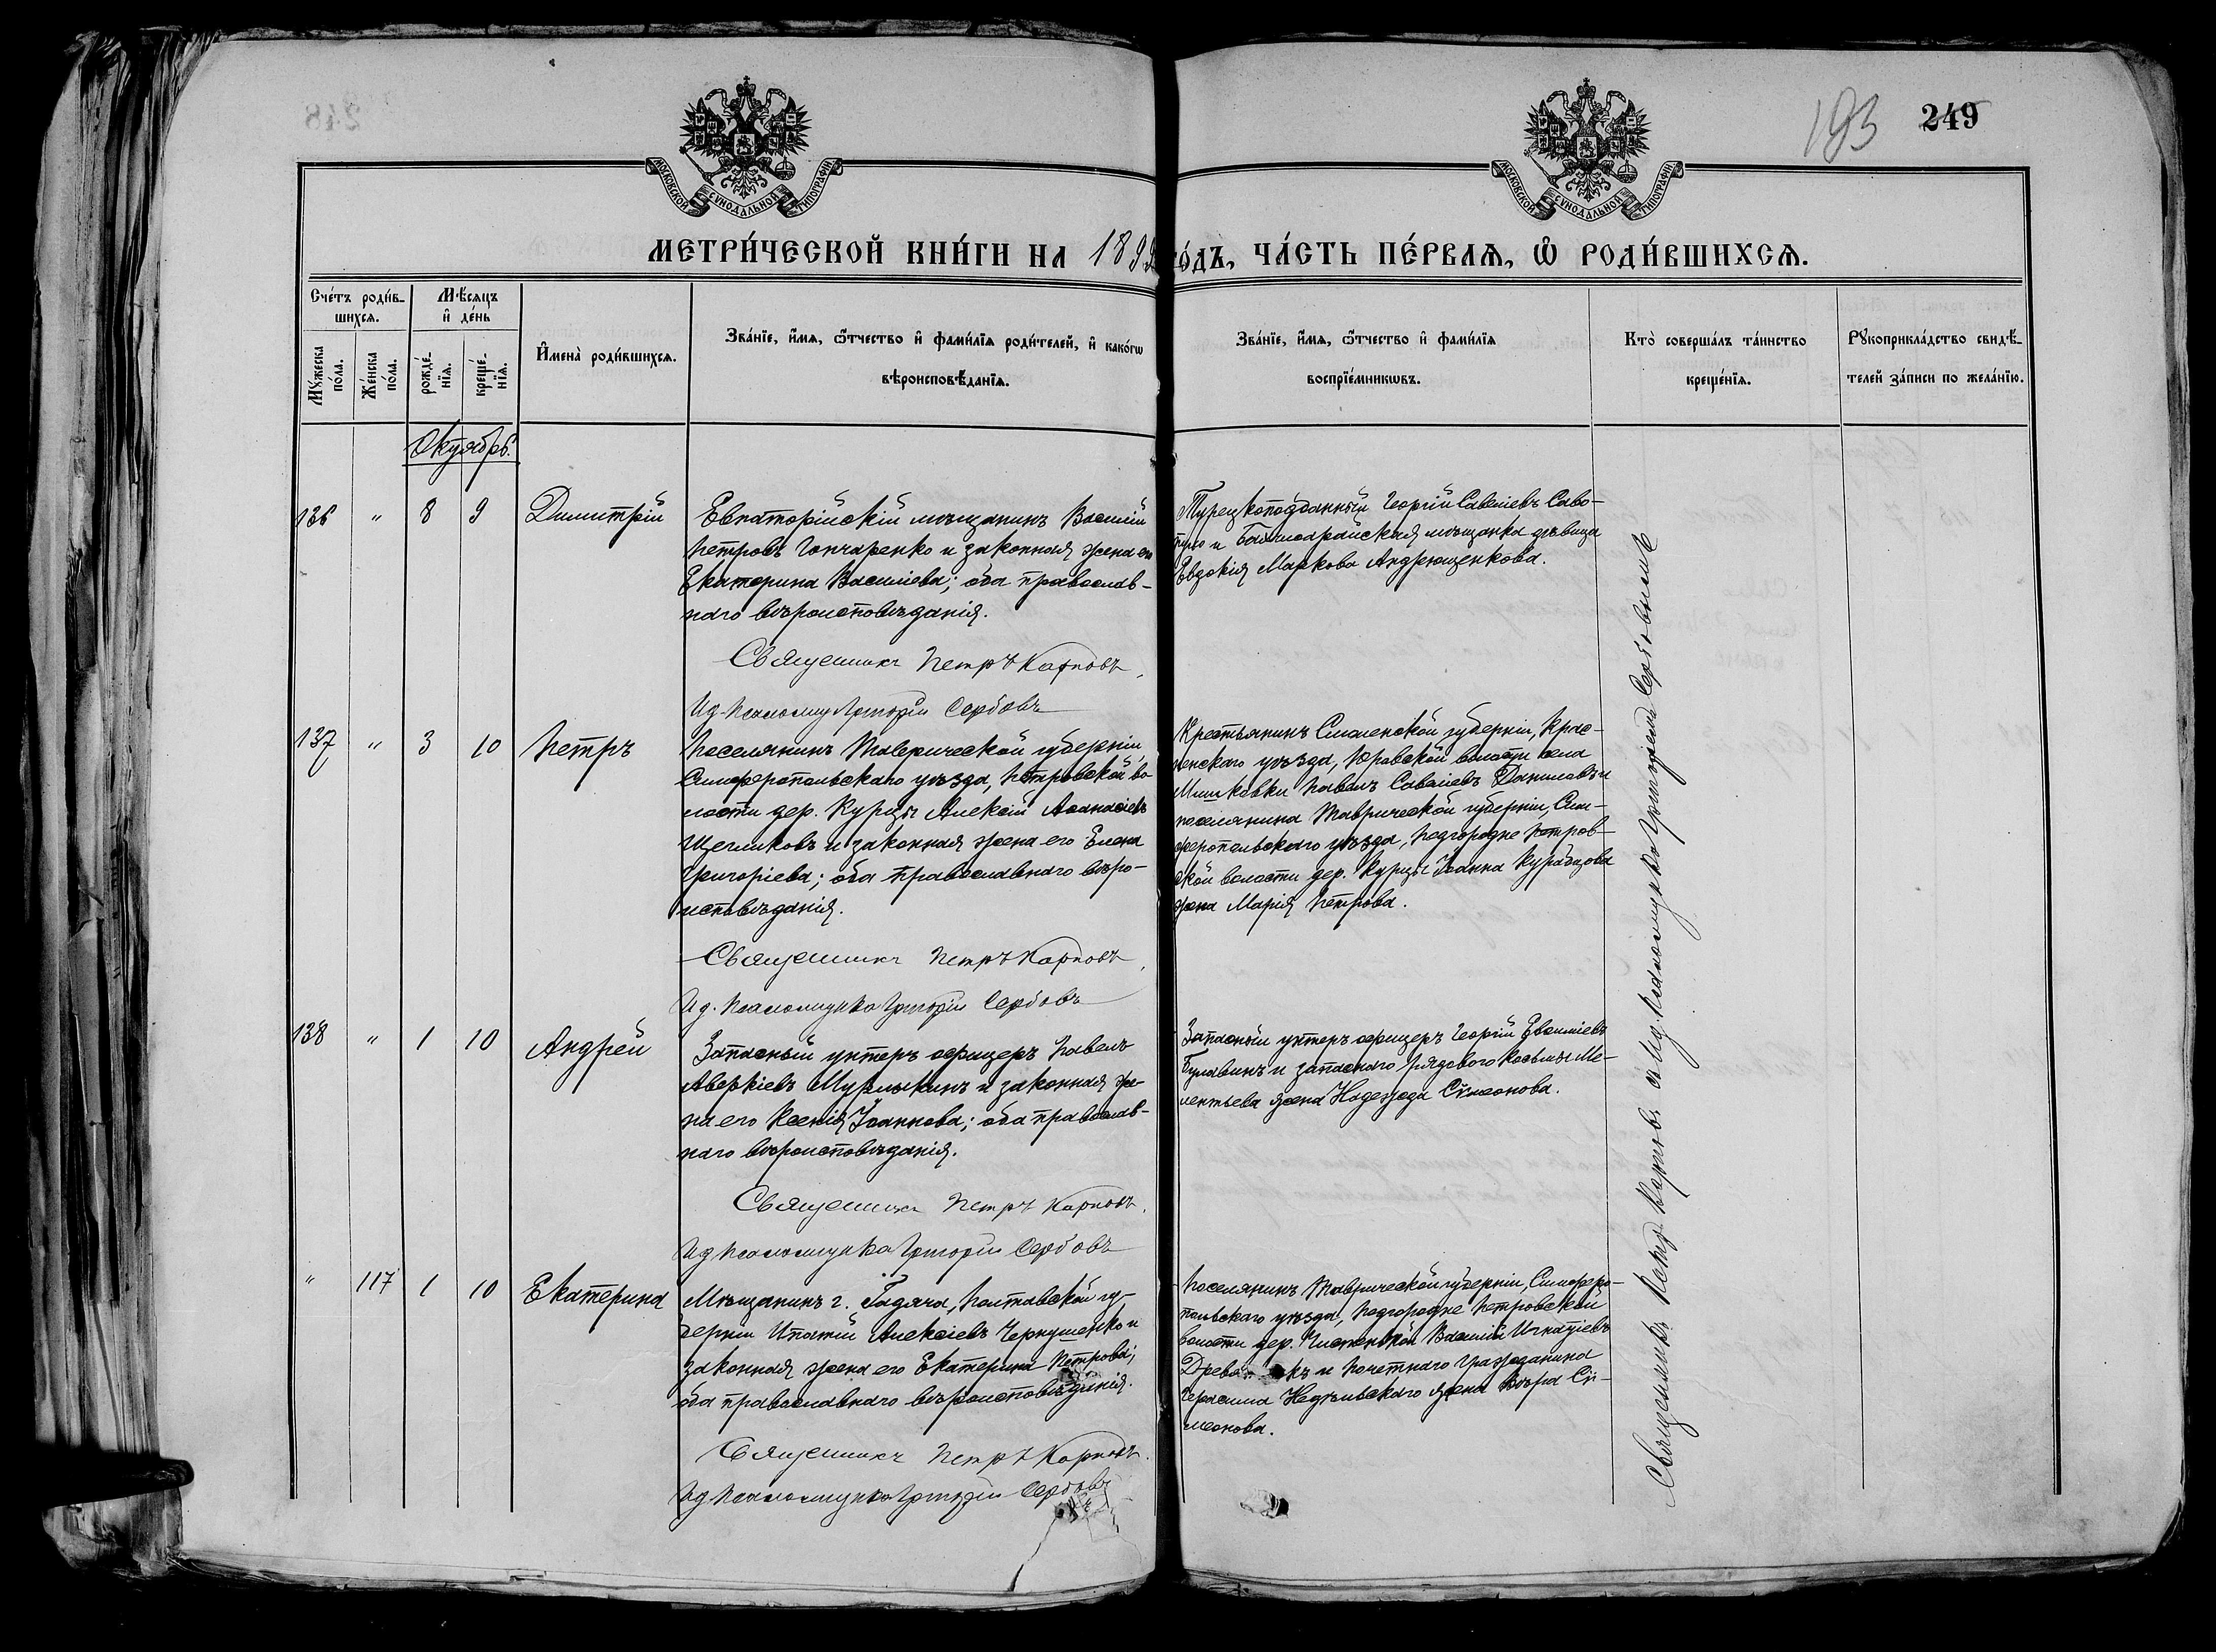 248
193 249
МОСКОВСКОЙ СѴНОДАЛЬНОЙ ТИПОГРАФІИ
МОСКОВСКОЙ СѴНОДАЛЬНОЙ ТИПОГРАФІИ
МЕТРИ́ЧЕСКОЙ КНИ́ГИ НА 189 го́дъ, ЧА́СТЬ ПЕ́РВАѦ, Ѽ РОДИ́ВШИХСѦ.
Сче́тъ роди́в-
шихсѧ.
Мꙋ́жеска по́ла.
Же́нска по́ла.
Мѣ́сѧцъ и҆ де́нь
рожде́-
нїѧ.
креще́-
нїѧ.
И҆мена̀ роди́вшихсѧ.
Зва́нїе, и҆́мѧ, ѻ҆́тчество и҆ фами́лїѧ роди́телей, и҆ како́гѡ
вѣроисповѣ́данїѧ.
Зва́нїе, и҆́мѧ, ѻ҆́тчество и҆ фами́лїѧ
воспрїе́мникѡвъ.
Кто̀ соверша́лъ та́инство
креще́нїѧ.
Рꙋкоприкла́дство свидѣ́-
телей за́писи по жела́нїю.
Октябрь.
136 " 8 9 Димитрій
Евпаторійскій мѣщанинъ Василій
Петровъ Гончаренко и законная жена его
Екатерина Васильева; оба православ-
наго вѣроисповѣданія.
Священникъ Петръ Карповъ
Ид. псаломщика Григорій Сербовъ
Турецкоподданный Георгій Савельевъ Саво-
пуло и Бахчисарайская мѣщанка дѣвица
Евдокія Маркова Андрющенкова.
137 " 3 10 Петръ
Поселянинъ Таврической губерніи,
Симферопольскаго уѣзда, Петровской во
лости дер. Курцы Алексій Аѳанасіевъ
Щегликовъ и законная жена его Елена
Григоріева; оба православнаго вѣро-
исповѣданія.
Священникъ Петръ Карповъ
Ид. псаломщика Григорій Сербовъ
Крестьянинъ Смоленской губерніи, Крас-
ненскаго уѣзда, волости села
Павелъ Савельевъ Даниловъ и
поселянина Таврической губерніи, Сим-
феропольскаго уѣзда, Подгородне Петров-
ской волости дер. Курцы Іоанна
жена Марія Петрова.
138 " 1 10 Андрей
Запасный унтеръ офицеръ Павелъ
Аверкіевъ Мурлыкинъ и законная же-
на его Ксенія Іоаннова; оба православ-
наго вѣроисповѣданія.
Священникъ Петръ Карповъ
Ид псаломщика Григорій Сербовъ
Запасный унтеръ офицеръ Георгій Евѳиміевъ
Булавинъ и запаснаго рядового Косьмы Ме-
лентьева жена Надежда Сѵмеонова.
" 117 1 10 Екатерина
Мѣщанинъ г. Гадяча, Полтавской гу-
берніи Ипатій Алексіевъ Чернушенко и
законная жена его Екатерина Петрова;
оба православнаго вѣроисповѣданія.
Священникъ Петръ Карповъ
Ид псаломщика Григорій Сербовъ
Поселянинъ Таврической губерніи, Симферо-
польскаго уѣзда, Подгородне Петровской
волости дер. Чистенькой Василій Игнатіевъ
и почетнаго гражданина
Герасима Недѣльскаго жена Вѣра Сѵ-
меонова.
Священникъ Петръ Карповъ съ Ид. псаломщика Григоріемъ Сербовымъ